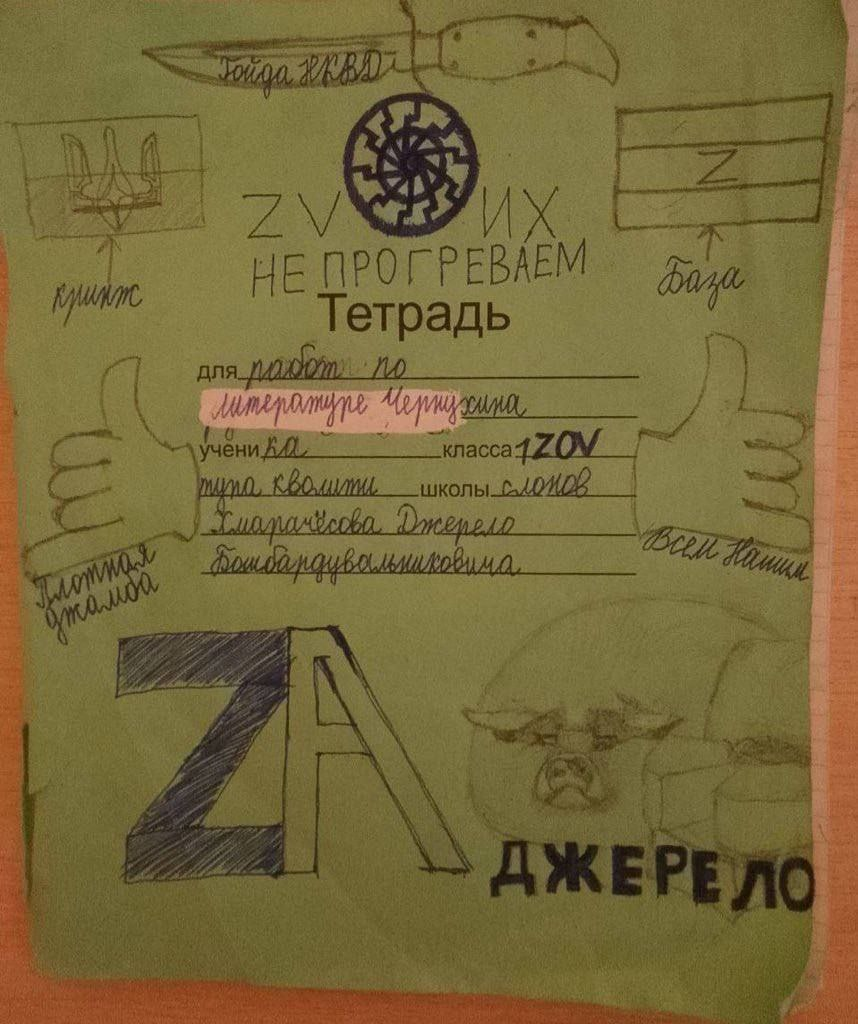 Гойда НКВД
ZVОИХ
НЕ ПРОГРЕВАЕМ
Z
кринж
База
Тетрадь
для работ по
литературе Чернухина
ученика класса 1ZOV
тупа кволити школы слонов
Хмарачёсова Джерело
Бомбардувальниковича
Плотная
джамба
Всем Нашим
ZА
ДЖЕРЕЛО